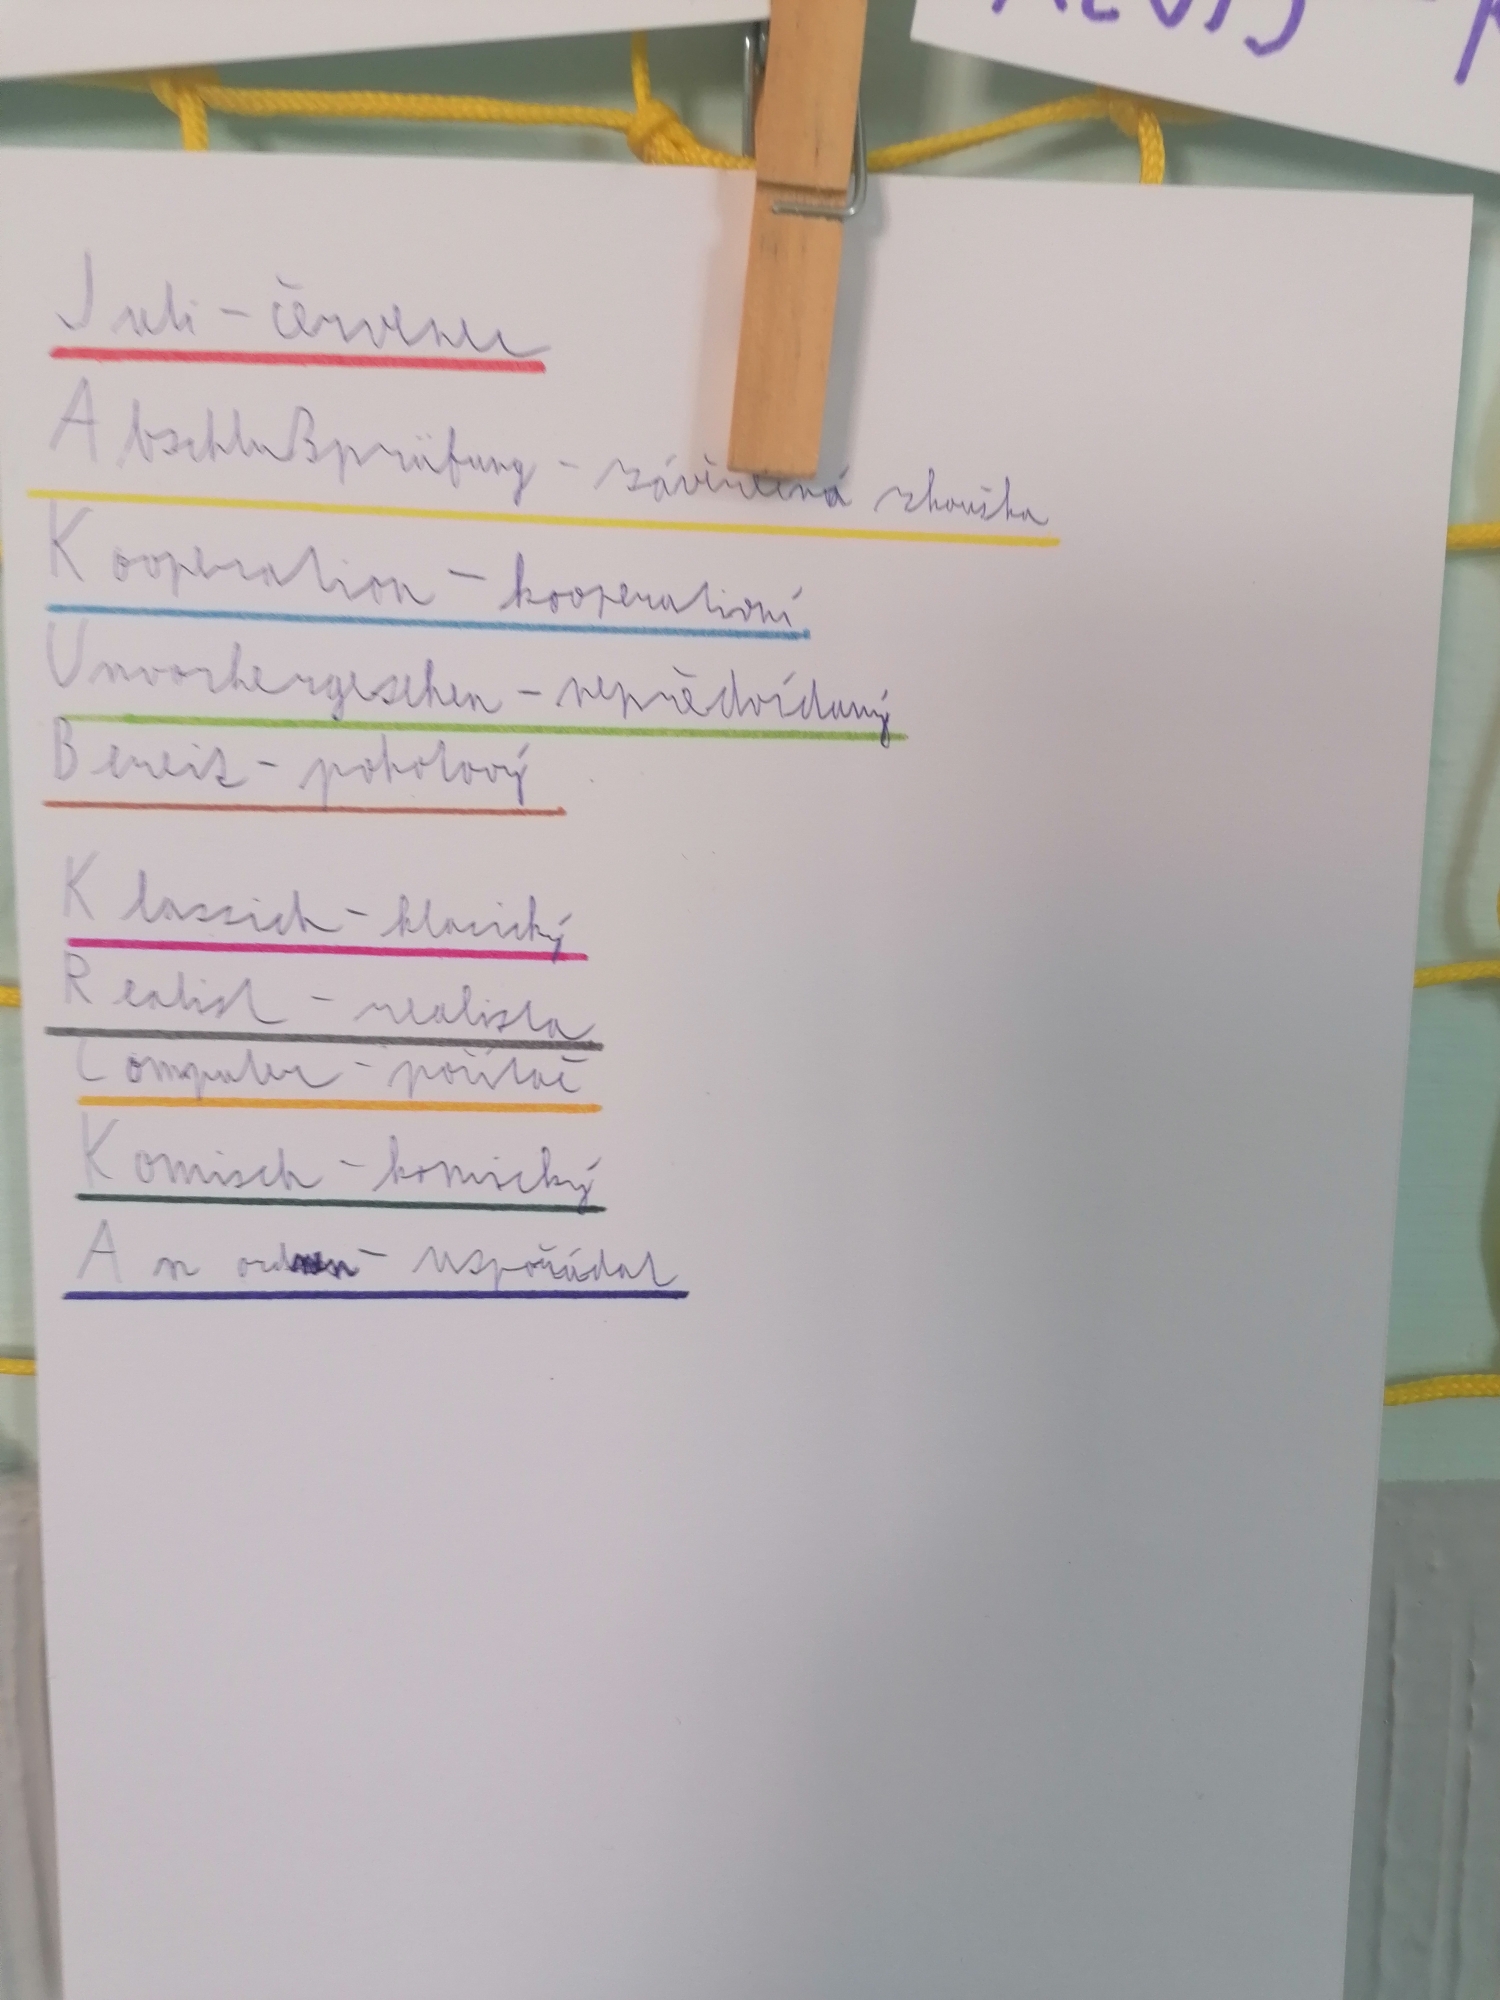 Juli - červenec
Abschlußprüfung - závěrečná zkouška
Kooperation - kooperationí
Unvorhergesehen - nepředvídaný
Bereit - pohotový
Klassich - klasický
Realist - realista
Computer - počítač
Komisch - komický
An ordnen - uspořádat